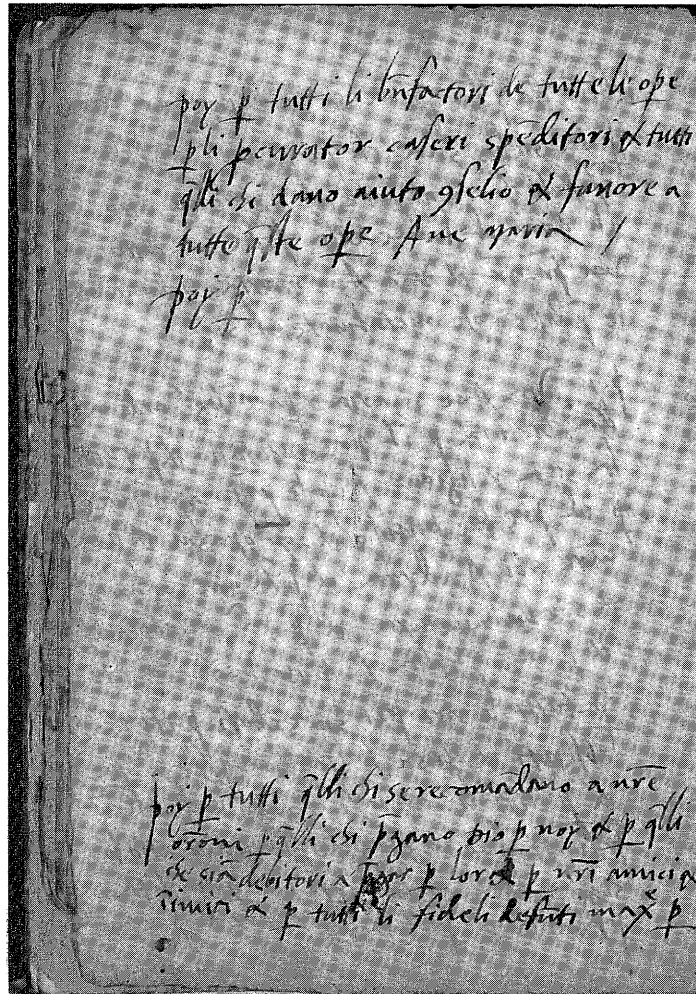 poy p̱ tutti li bn̄factori de tutte le ope
p̱ li pcurator caseri spēditori & tutti
q̄lli chi dano aiuto 9selio & fauore a
tutte q̄ste ope Aue maria /
poy p̱
poy p̱ tutti q̄lli chi se recomādano a nr̄e
or̄oni p̱ q̄lli chi p̄gano dio p̱ noy & p̱ q̄lli
che siā debitori a p̱ lor & p̱ nr̄i amici &
īimici & p̱ tutti li fideli defūti max̄ p̱